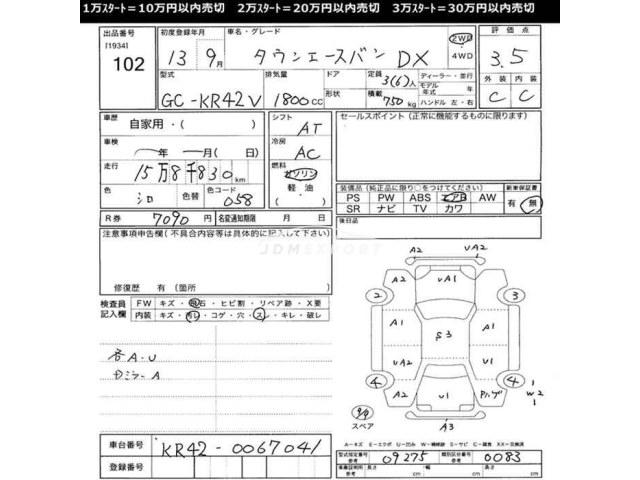 1万スタート=10万円以内売切 2万スタート=20万円以内売切 3万スタート=30万円以内売切
出品番号 初度登録年月 車名・グレード 2WD 評価点
[1934] 13 9月 タウンエースバン DX 4WD 3.5
102
型式 排気量 ドア 定員 3(6)人 ディーラー・並行 外装 内装
GC-KR42V 1800cc 形状 積載 750kg モデル年式 年 C C
ハンドル 左・右
車歴 自家用・( ) シフト AT セールスポイント (正常に機能するものに限ります)
車検 年 月(日) 冷房 AC
走行 15万8千830km 燃料 ガソリン
軽油
( )
色 シロ 色替 色コード 058
装備品(純正品に限り○をつけてください) 新車保証書
PS PW ABS エアB AW 有 無
SR ナビ TV カワ
R券 7090円 名変通知期限 月 日 後日品
注意事項申告欄(不具合内容等は具体的に記入して下さい)
JDM EXPORT
修復歴 有 (箇所 )
検査員記入欄 FW キズ・飛石・ヒビ割・リペア跡・X要
内装 キズ・汚レ・コゲ・穴・スレ・キレ・破レ
各A・U
Dミラ-A
A2 UA2
A2 UA1 A2
2 3
A1 S3 A1
UA2 U1
4 U1 4
W2
スペア A3
A-キズ E-エクボ U-凹み W-補修跡 S-サビ C-腐食 XX-交換済
車台番号 KR42-0067041
登録番号
型式指定番号 参考 09275 類別区分番号 参考 0083
長さ cm 幅 cm 高さ cm